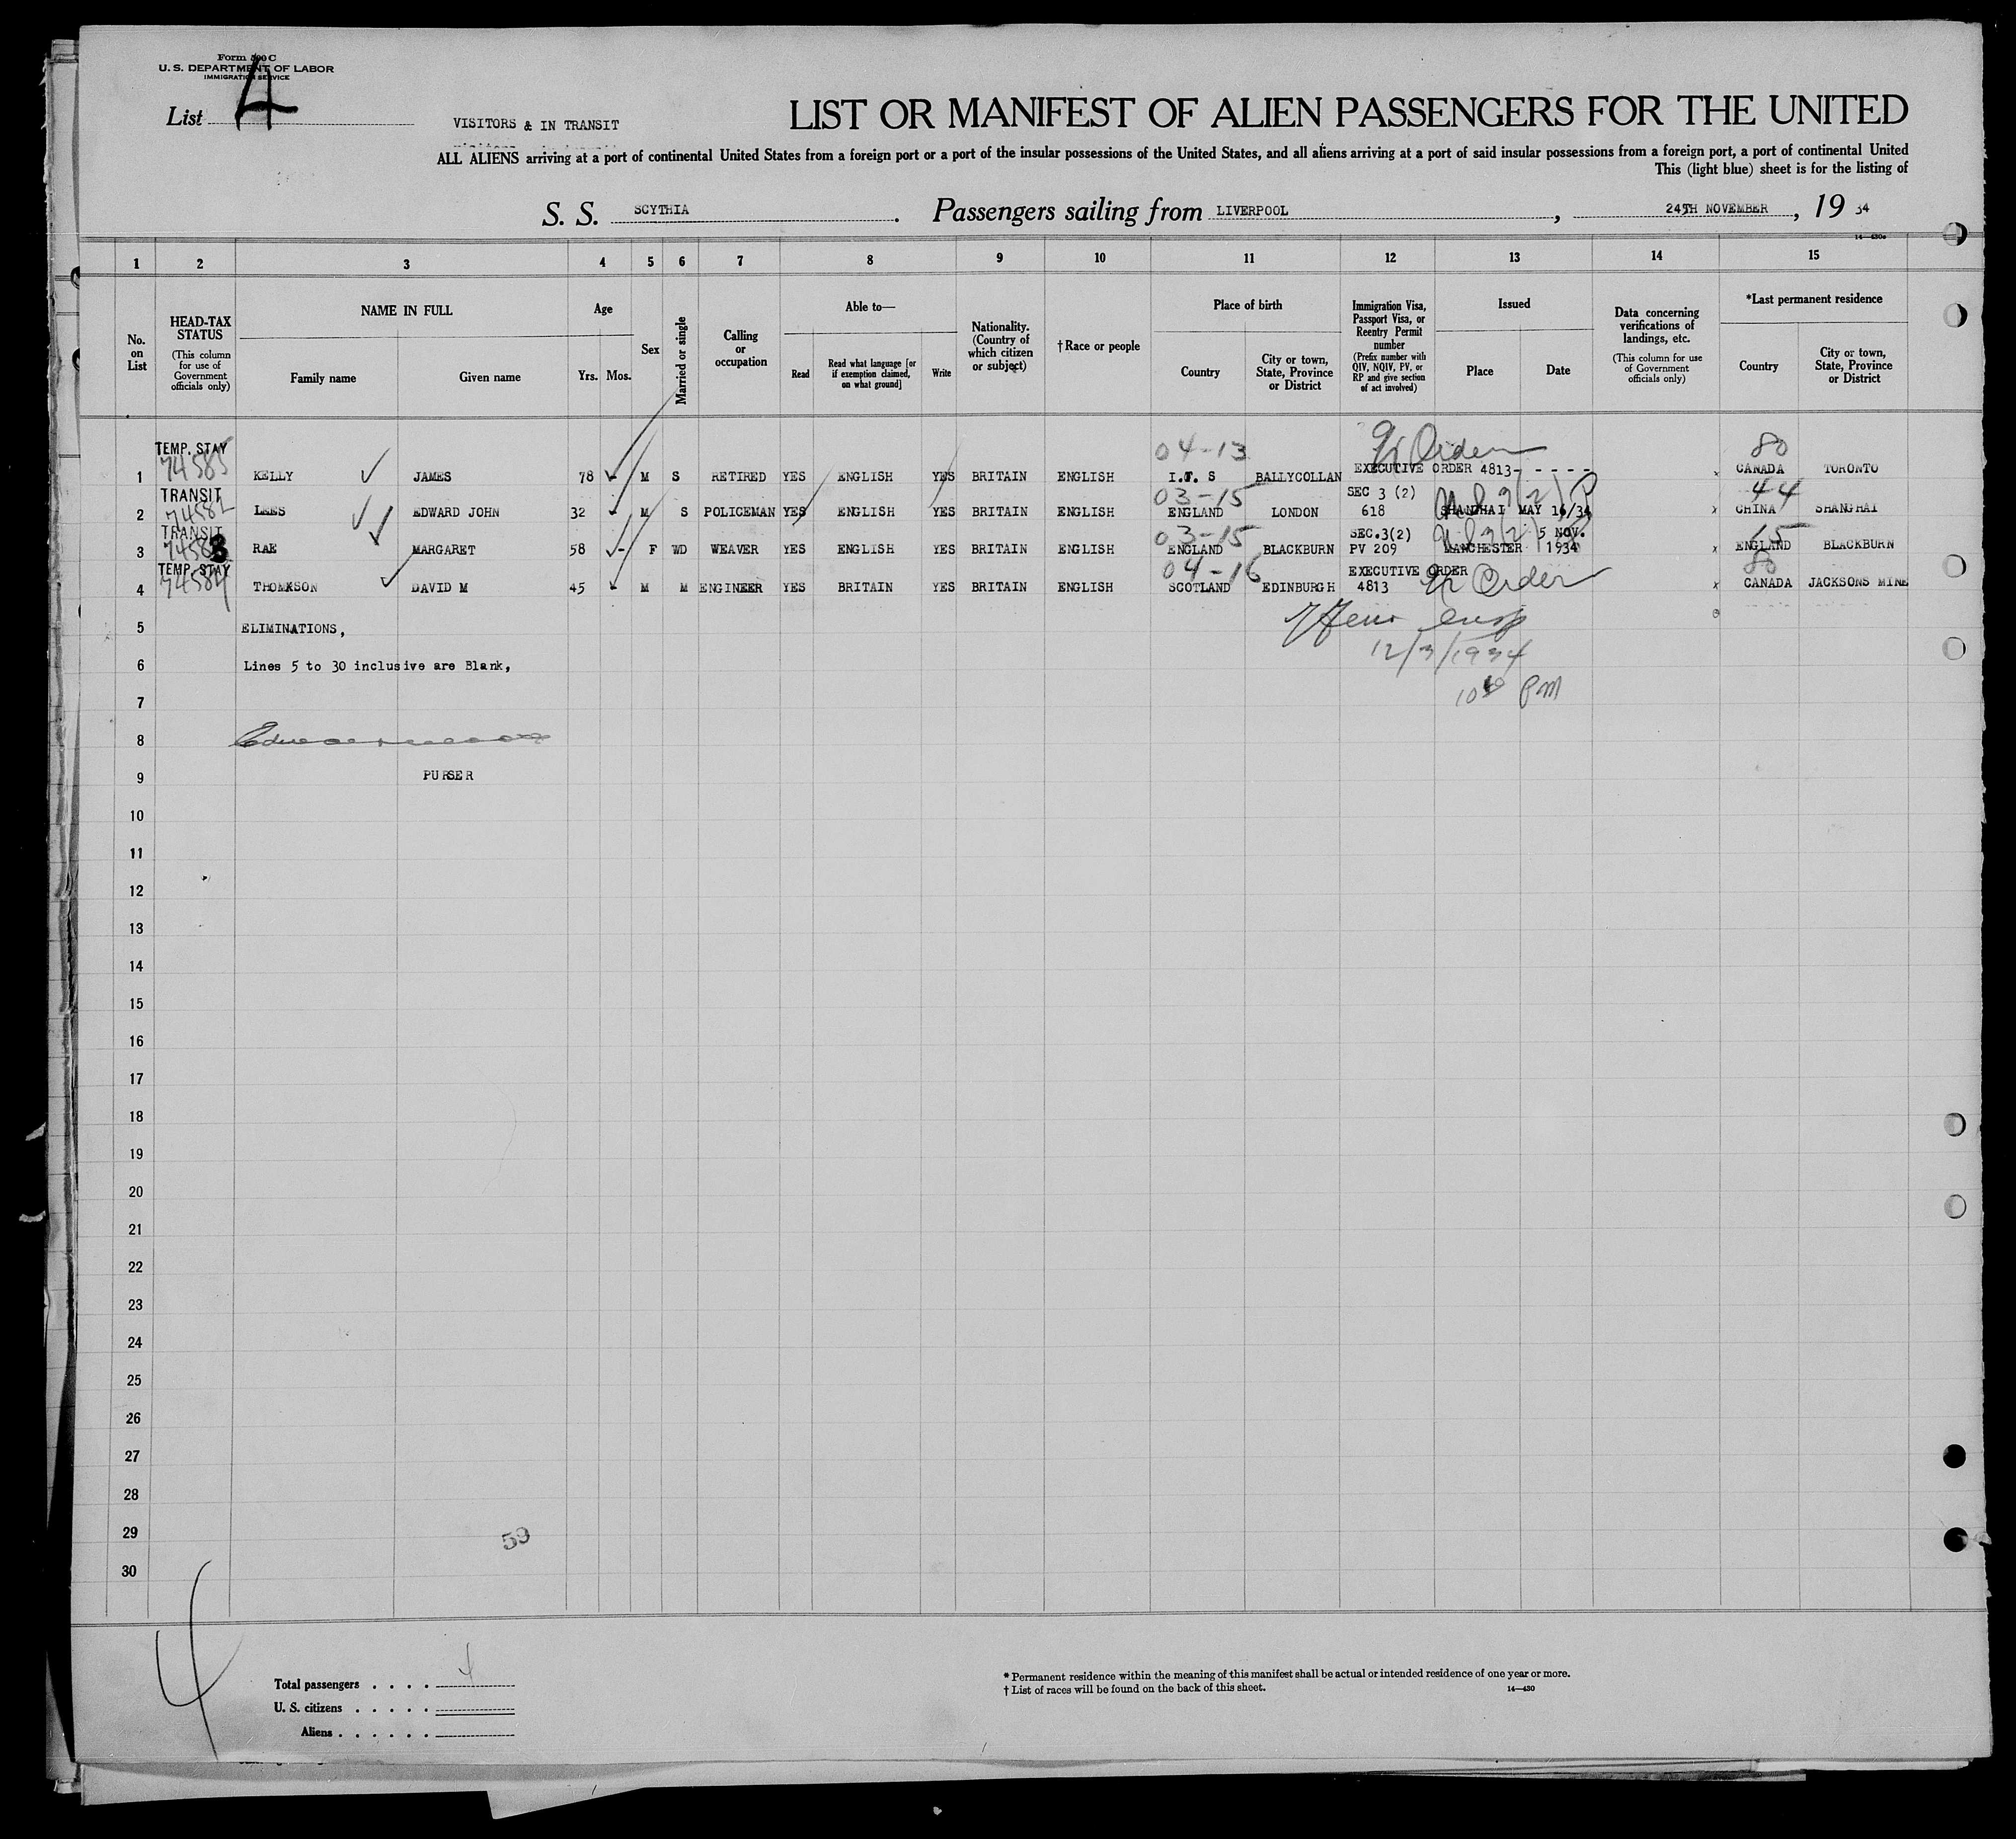 Form 500 C
U. S. DEPARTMENT OF LABOR
IMMIGRATION SERVICE
List 4
VISITORS & IN TRANSIT
LIST OR MANIFEST OF ALIEN PASSENGERS FOR THE UNITED
ALL ALIENS arriving at a port of continental United States from a foreign port or a port of the insular possessions of the United States, and all aliens arriving at a port of said insular possessions from a foreign port, a port of continental United
This (light blue) sheet is for the listing of
S. S. SCYTHIA. Passengers sailing from LIVERPOOL, 24TH NOVEMBER, 19 34
14—430c
1 2 3 4 5 6 7 8 9 10 11 12 13 14 15
No. on List
HEAD-TAX STATUS (This column for use of Government officials only)
NAME IN FULL
Family name Given name
Age
Yrs. Mos.
Sex
Married or single
Calling or occupation
Able to—
Read
Read what language [or if exemption claimed, on what ground]
Write
Nationality. (Country of which citizen or subject)
†Race or people
Place of birth
Country
City or town, State, Province or District
Immigration Visa, Passport Visa, or Reentry Permit number (Prefix number with QIV, NQIV, PV, or RP and give section of act involved)
Issued
Place Date
Data concerning verifications of landings, etc. (This column for use of Government officials only)
*Last permanent residence
Country
City or town, State, Province or District
TEMP. STAY 74585 04-13 Ex Order 80
1 KELLY JAMES 78 M S RETIRED YES ENGLISH YES BRITAIN ENGLISH I.F. S BALLYCOLLAN EXECUTIVE ORDER 4813- - - - - x CANADA TORONTO
TRANSIT 74582 03-15 SEC 3 (2) 44
2 LEES EDWARD JOHN 32 M S POLICEMAN YES ENGLISH YES BRITAIN ENGLISH ENGLAND LONDON 618 SHANGHAI MAY 16/34 x CHINA SHANGHAI
TRANSIT 74583 03-15 SEC.3(2) 5 NOV. 15
3 RAE MARGARET 58 - F WD WEAVER YES ENGLISH YES BRITAIN ENGLISH ENGLAND BLACKBURN PV 209 MANCHESTER 1934 x ENGLAND BLACKBURN
TEMP. STAY 74584 04-16 EXECUTIVE ORDER 80
4 THOMSON DAVID M 45 M M ENGINEER YES BRITAIN YES BRITAIN ENGLISH SCOTLAND EDINBURGH 4813 Ex Order x CANADA JACKSONS MINE
5 ELIMINATIONS,
6 Lines 5 to 30 inclusive are Blank,
12/3/1934
7
PM
8
9 PURSER
10
11
12
13
14
15
16
17
18
19
20
21
22
23
24
25
26
27
28
29 59
30
4
Total passengers . . . . 4
U. S. citizens . . . . .
Aliens . . . . . .
* Permanent residence within the meaning of this manifest shall be actual or intended residence of one year or more.
† List of races will be found on the back of this sheet.
14—430